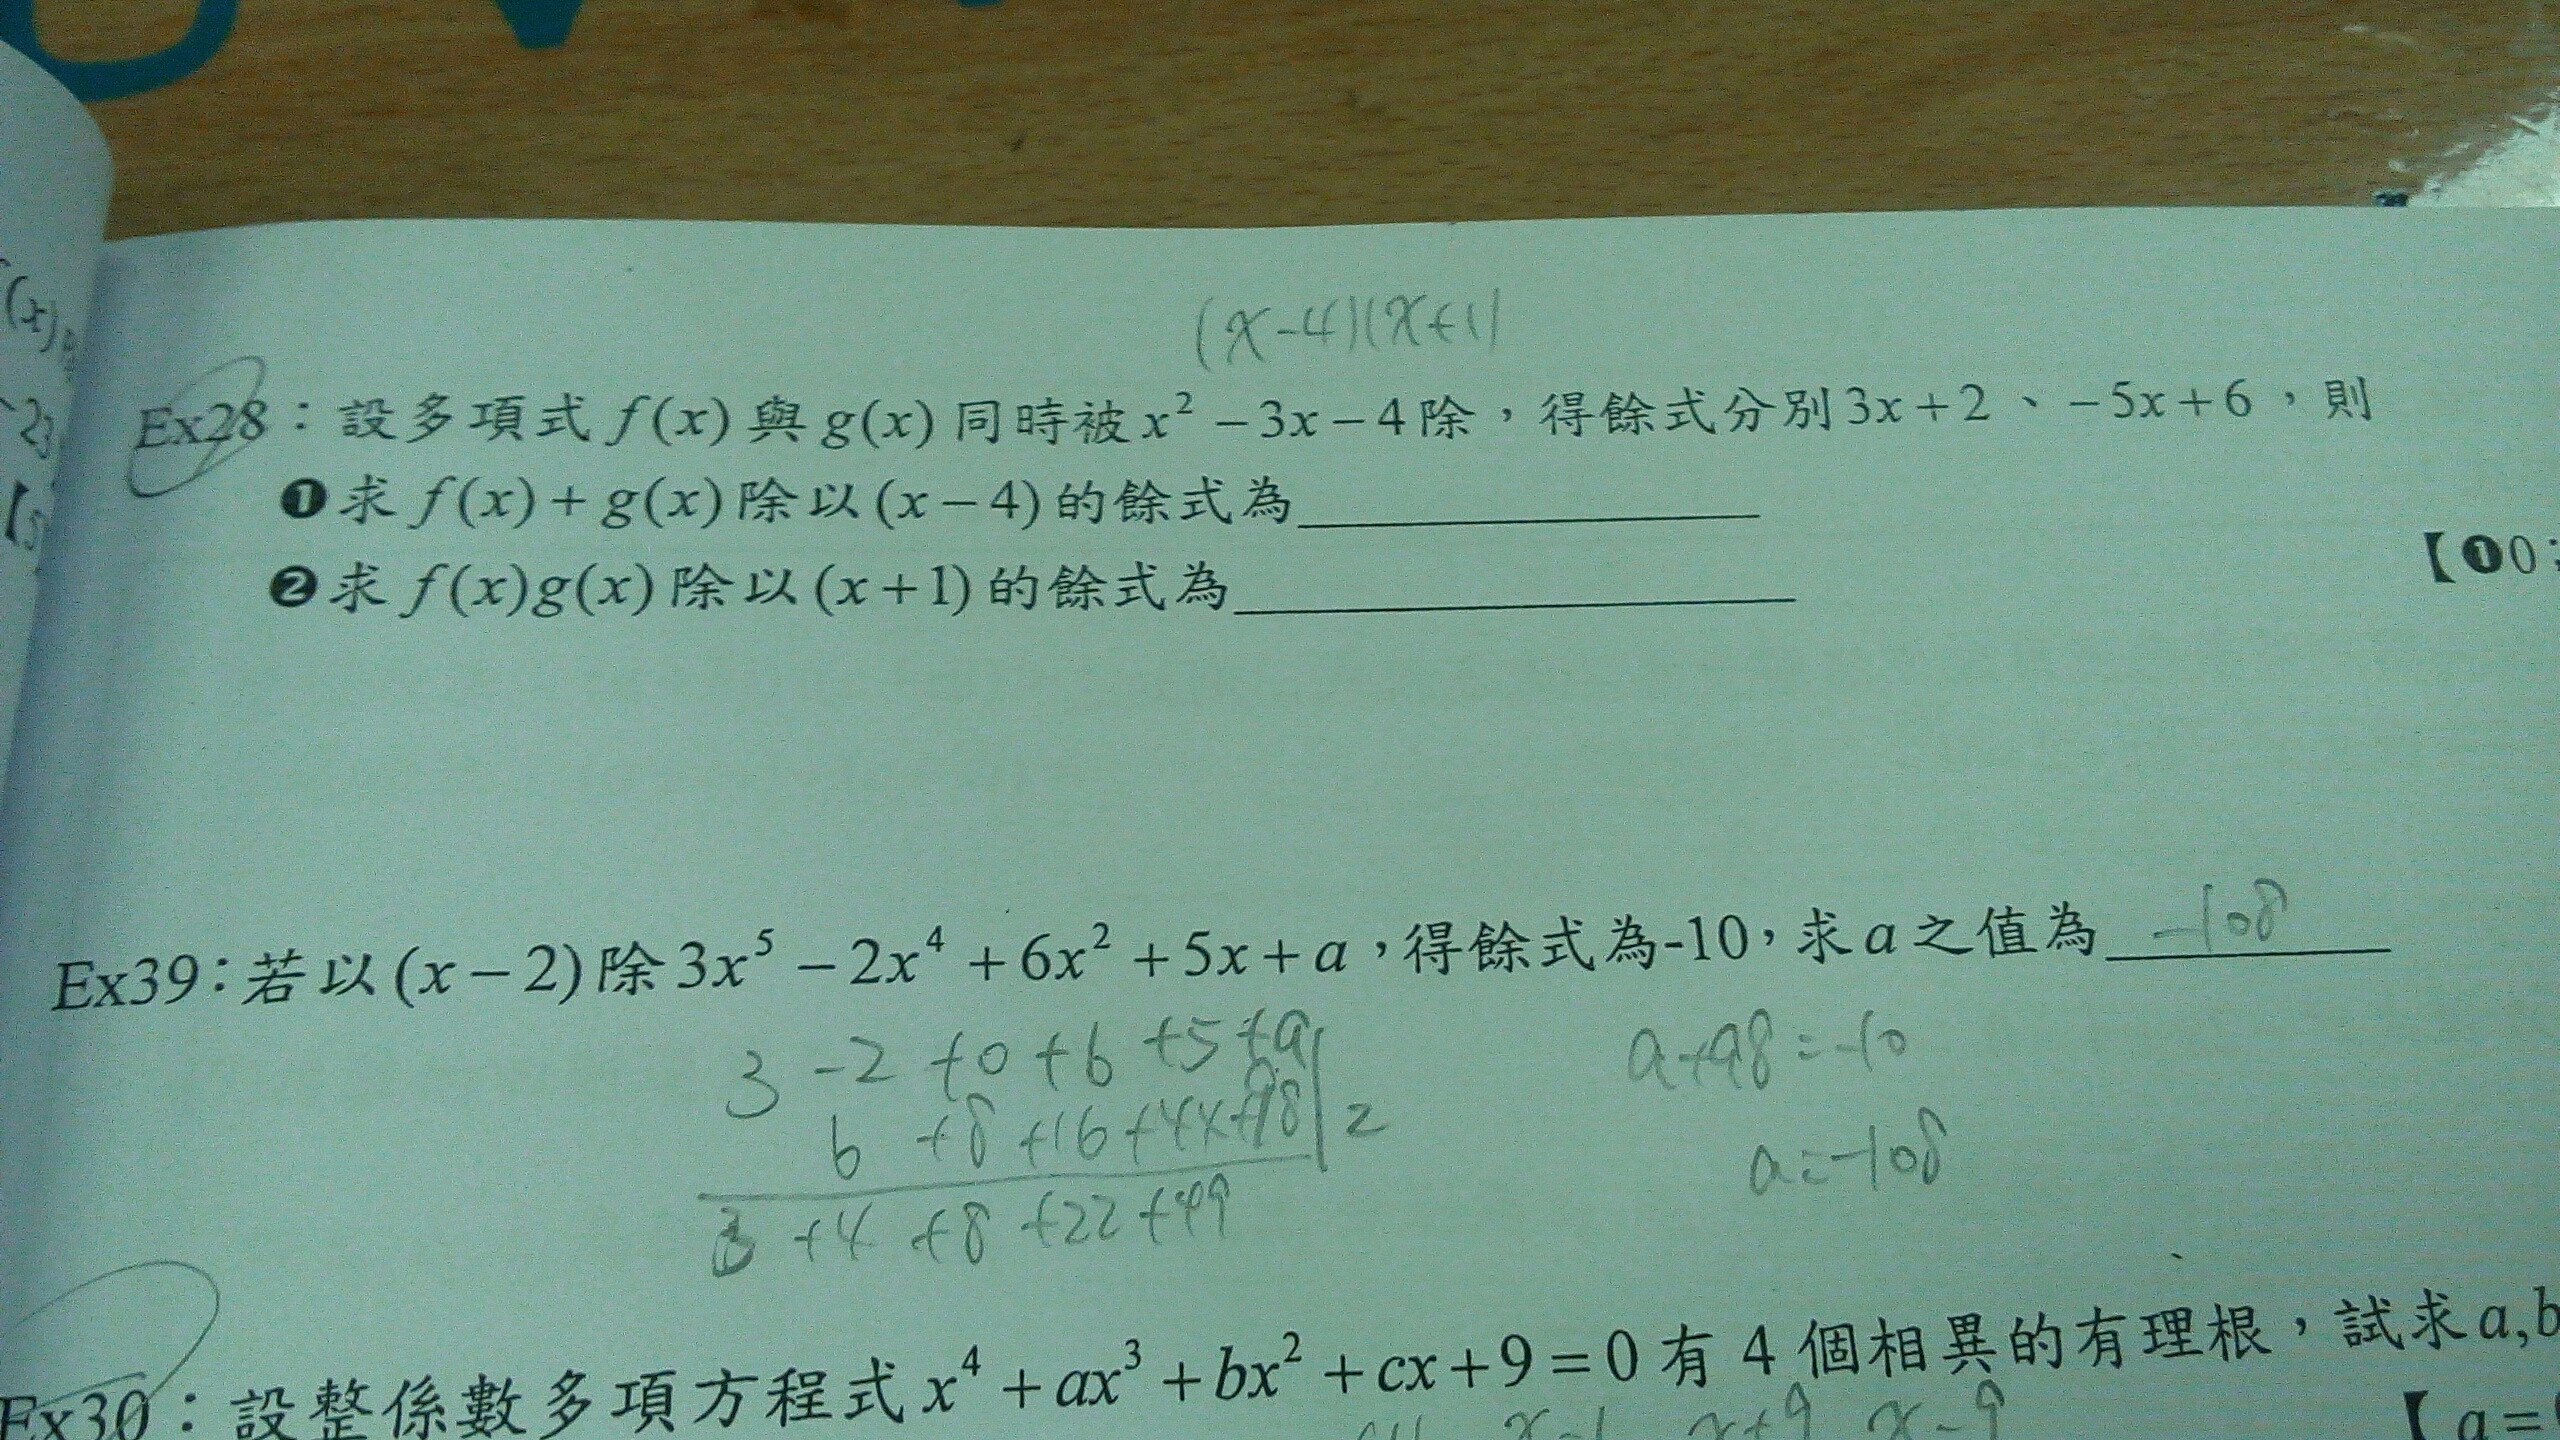 (x-4)(x+1)
Ex28：設多項式 f(x) 與 g(x) 同時被 x² − 3x − 4 除，得餘式分別 3x + 2、−5x + 6，則
❶求 f(x) + g(x) 除以 (x − 4) 的餘式為
❷求 f(x)g(x) 除以 (x + 1) 的餘式為
【❶0；
Ex39：若以 (x − 2) 除 3x⁵ − 2x⁴ + 6x² + 5x + a，得餘式為-10，求 a 之值為 -108
3 -2 +0 +6 +5 +a
6 +8 +16 +44 +98 2
3 +4 +8 +22 +49
a+98=-10
a=-108
Ex30：設整係數多項方程式 x⁴ + ax³ + bx² + cx + 9 = 0 有 4 個相異的有理根，試求 a,b
x-1 x+9 x-9
【a=